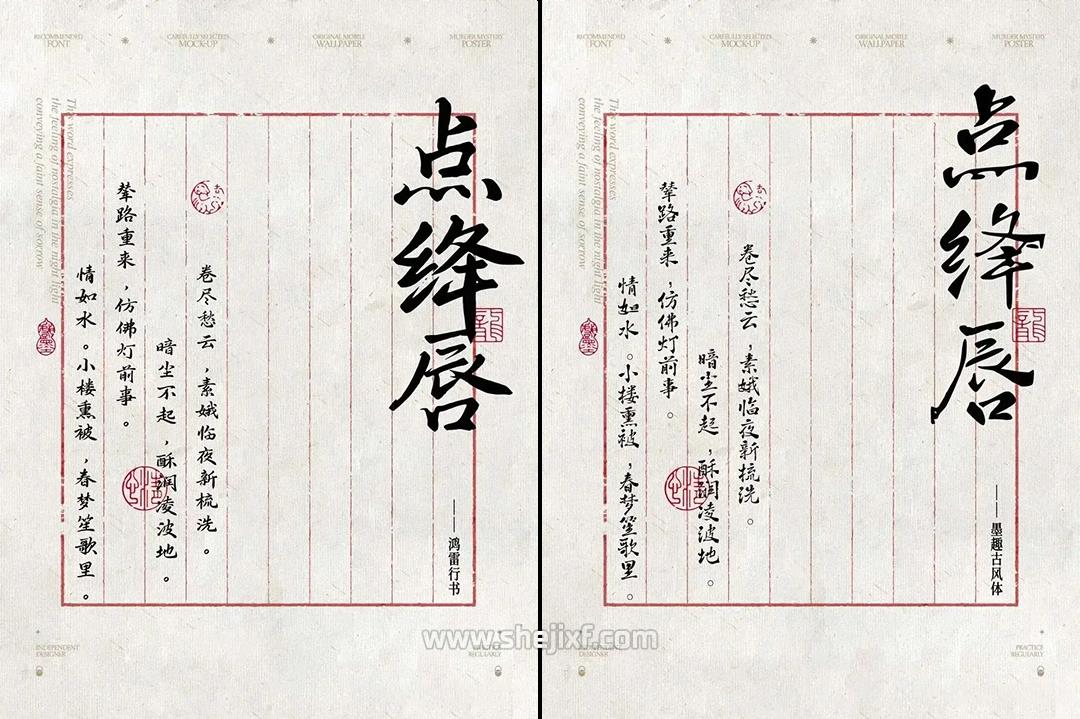 RECOMMENDED
FONT
CAREFULLY SELECTED
MOCK-UP
ORIGINAL MOBILE
WALLPAPER
MURDER MYSTERY
POSTER
点绛唇
——鸿雷行书
卷尽愁云，素娥临夜新梳洗。
暗尘不起，酥润凌波地。
辇路重来，仿佛灯前事。
情如水。小楼熏被，春梦笙歌里。
This word expresses
the feeling of nostalgia in the night light
conveying a faint sense of sorrow
INDEPENDENT
DESIGNER
PRACTICE
REGULARLY
RECOMMENDED
FONT
CAREFULLY SELECTED
MOCK-UP
ORIGINAL MOBILE
WALLPAPER
MURDER MYSTERY
POSTER
点绛唇
——墨趣古风体
卷尽愁云，素娥临夜新梳洗。
暗尘不起，酥润凌波地。
辇路重来，仿佛灯前事。
情如水。小楼熏被，春梦笙歌里。
This word expresses
the feeling of nostalgia in the night light
conveying a faint sense of sorrow
DESIGNER
PRACTICE
REGULARLY
www.shejixf.com